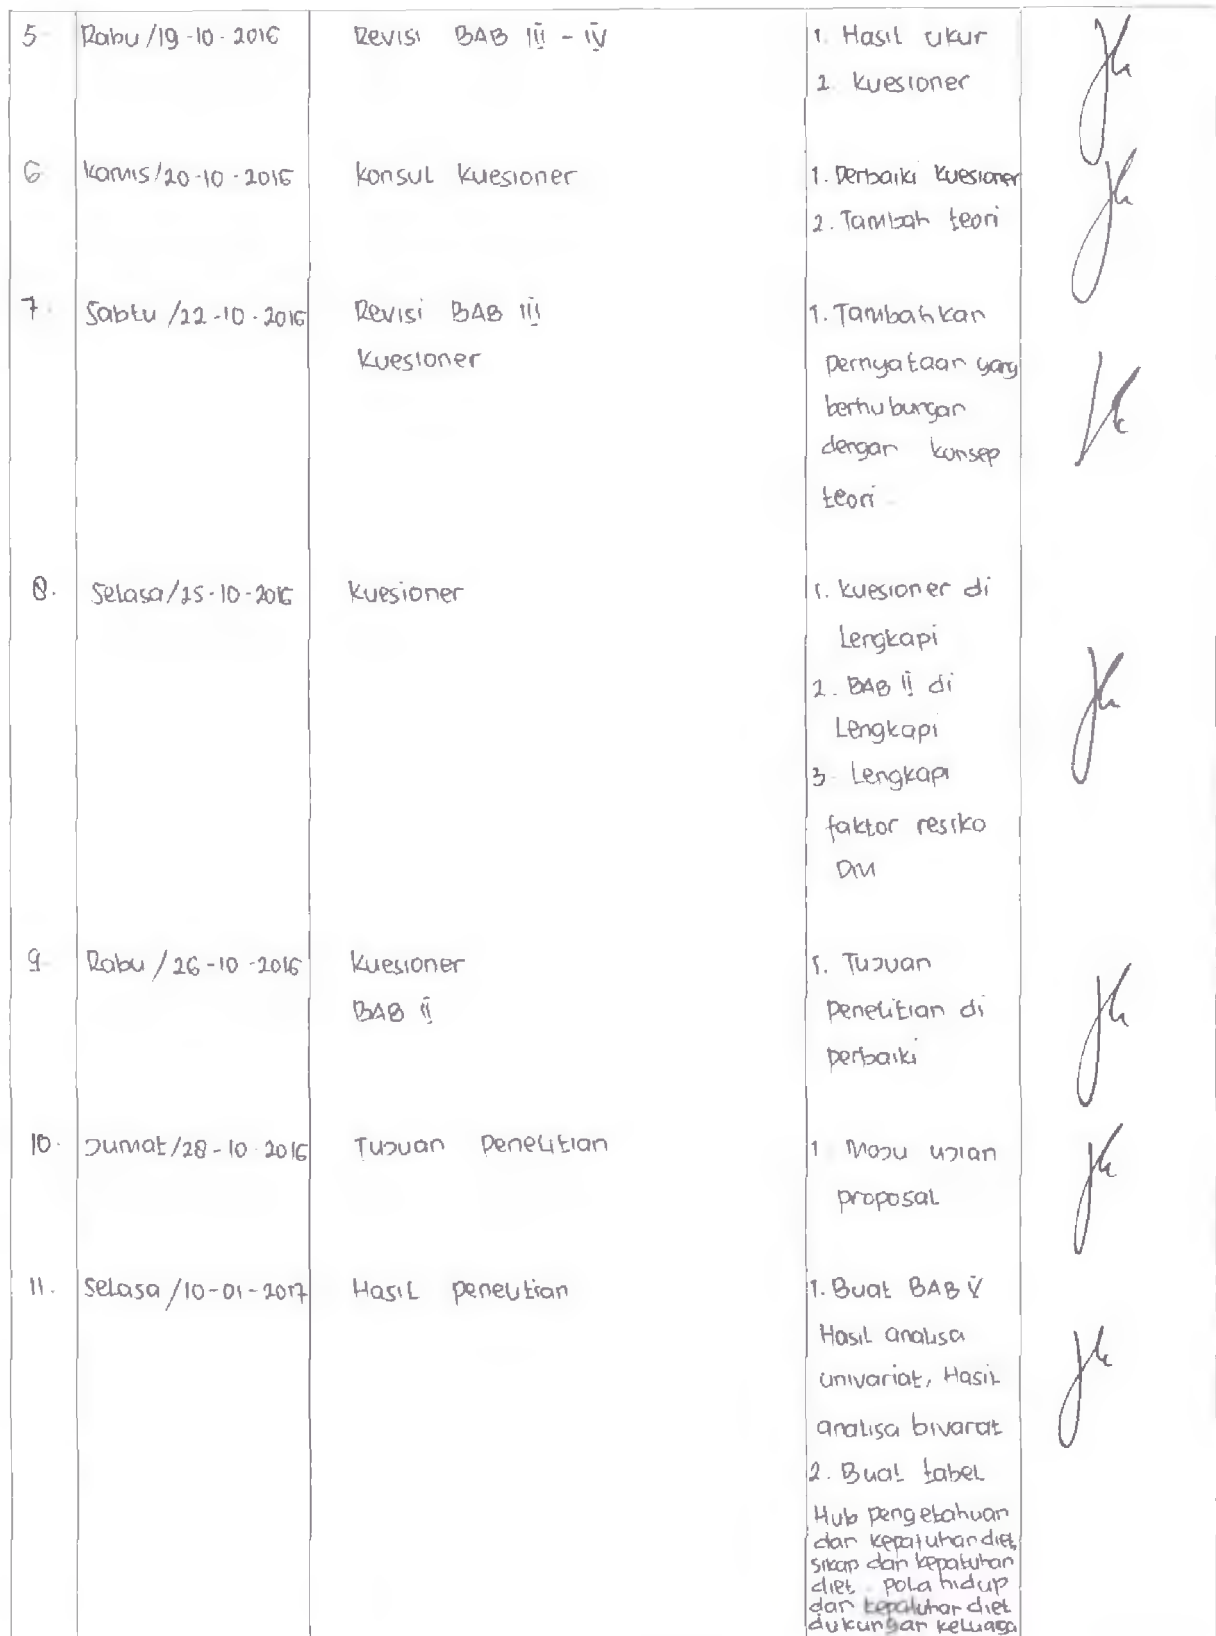 5 Rabu /19-10-2016 Revisi BAB III - IV 1. Hasil ukur
2. Kuesioner
6 Kamis/20-10-2016 Konsul Kuesioner 1. Perbaiki Kuesioner
2. Tambah teori
7. Sabtu /22-10-2016 Revisi BAB III 1. Tambahkan
Kuesioner pernyataan yang
berhubungan
dengan konsep
teori
8. Selasa/25-10-2016 Kuesioner 1. Kuesioner di
Lengkapi
2. BAB II di
Lengkapi
3. Lengkapi
faktor resiko
DM
9 Rabu /26-10-2016 Kuesioner 1. Tujuan
BAB II Penelitian di
perbaiki
10. Jumat/28-10-2016 Tujuan Penelitian 1 Maju ujian
proposal
11. Selasa /10-01-2017 Hasil penelitian 1. Buat BAB V
Hasil analisa
univariat, Hasil
analisa bivarat
2. Buat tabel
Hub pengetahuan
dan kepatuhan diet,
sikap dan kepatuhan
diet pola hidup
dan kepatuhan diet
dukungan keluaga